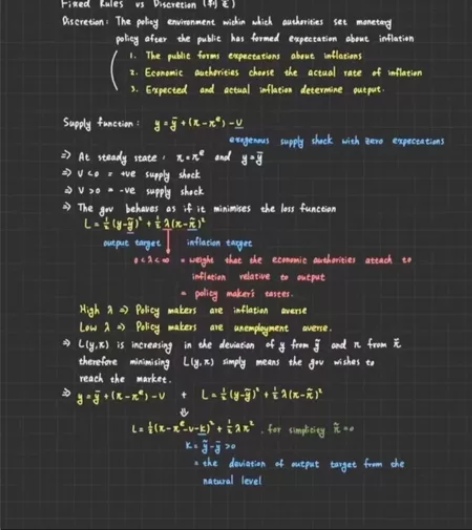 Fixed Rules vs Discretion
Discretion: The policy environment within which authorities set monetary
policy after the public has formed expectation about inflation
1. The public forms expectations about inflations
2. Economic authorities choose the actual rate of inflation
3. Expected and actual inflation determine output.
Supply function: y = ȳ + (π - πᵉ) - υ
exogenous supply shock with zero expectations
⇒ At steady state: π = πᵉ and y = ȳ
⇒ υ < 0 = +ve supply shock
⇒ υ > 0 = -ve supply shock
⇒ The gov behaves as if it minimises the loss function
L = ½ (y - ỹ)² + ½ λ (π - π̃)²
output target inflation target
0 < λ < ∞ = weight that the economic authorities attach to
inflation relative to output
= policy maker's tastes.
High λ ⇒ Policy makers are inflation averse
Low λ ⇒ Policy makers are unemployment averse.
⇒ L(y,π) is increasing in the deviation of y from ỹ and π from π̃
therefore minimising L(y,π) simply means the gov wishes to
reach the market.
⇒ y = ȳ + (π - πᵉ) - υ + L = ½ (y - ỹ)² + ½ λ (π - π̃)²
⇓
L = ½ (π - πᵉ - υ - k)² + ½ λ π² , for simplicity π̃ = 0
k = ỹ - ȳ > 0
= the deviation of output target from the
natural level